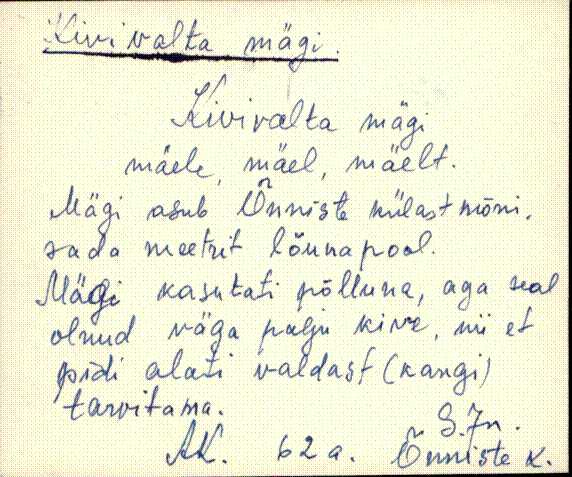 Kivivalta mägi.
Kivivalta mägi
mäele, mäel, mäelt.
Mägi asub Õnniste külast mõni-
sada meetrit lõunapool.
Mägi kasutati põlluna, aga seal
olnud väga palju kive, nii et
pidi alati valdast (kangi)
tarvitama.
S. Jn.
AK. 62 a. Õnniste k.